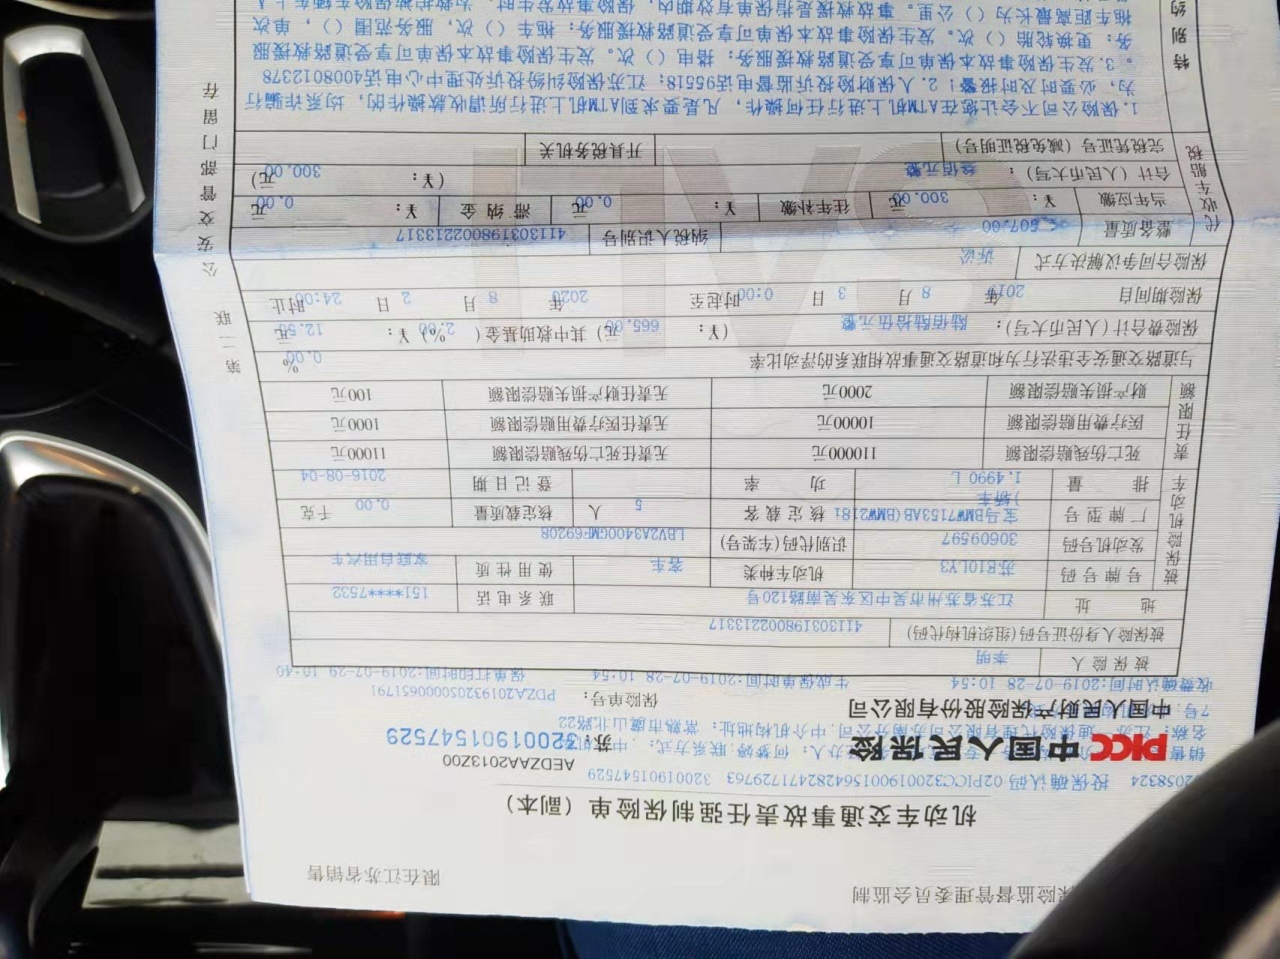 保险监督管理委员会监制 限在江苏省销售
机动车交通事故责任强制保险单（副本）
02PICC320019001564284717729763 32001901547529
AEDZAA2013Z00
PICC 中国人民保险
苏:32001901547529
中国人民财产保险股份有限公司
保险单号: PDZA201932050000651791
收费确认时间:2019-07-28 10:54 生成保单时间:2019-07-28 10:54 保单打印时间:2019-07-29 10:40
被保险人 李明
被保险人身份证号码(组织机构代码) 411303198002213317
地址 江苏省苏州市吴中区东吴南路120号 联系电话 151****7532
被保险机动车
号牌号码 苏E10LY3 机动车种类 客车 使用性质 家庭自用汽车
发动机号码 30609597 识别代码(车架号) LBV2A3400GMF69208
厂牌型号 宝马BMW7153AB(BMW2181)轿车 核定载客 5 人 核定载质量 0.00 千克
排量 1.4990 L 功率 登记日期 2016-08-04
责任限额
死亡伤残赔偿限额 110000元 无责任死亡伤残赔偿限额 11000元
医疗费用赔偿限额 10000元 无责任医疗费用赔偿限额 1000元
财产损失赔偿限额 2000元 无责任财产损失赔偿限额 100元
与道路交通安全违法行为和道路交通事故相联系的浮动比率 0.00 %
保险费合计(人民币大写): 陆佰陆拾伍元整 (¥: 665.00 元) 其中救助基金( 2.00 %)¥: 12.55 元
保险期间自 2019 年 8 月 3 日 0:00 时起至 2020 年 8 月 2 日 24:00 时止
保险合同争议解决方式 诉讼
代收车船税
整备质量 纳税人识别号 411303198002213317
当年应缴 ¥: 300.00 元 往年补缴 ¥: 0.00 元 滞纳金 ¥: 0.00 元
合计(人民币大写): 叁佰元整 (¥: 300.00 元)
完税凭证号(减免税证明号) 开具税务机关
特别约
1.保险公司不会让您在ATM机上进行任何操作，凡是要求到ATM机上进行所谓收款操作的，均系诈骗行
为，必要时及时报警！2.人保财险投诉监督电话95518；江苏保险纠纷投诉处理中心电话4008012378
。3.发生保险事故本保单可享受道路救援服务：搭电（）次。发生保险事故本保单可享受道路救援服
务：更换轮胎（）次。发生保险事故本保单可享受道路救援服务：拖车（）次，服务范围（），单次
拖车距离最长为（）公里。事故救援是指保单有效期内，保险事故发生时，
第二联 公安交管部门留存